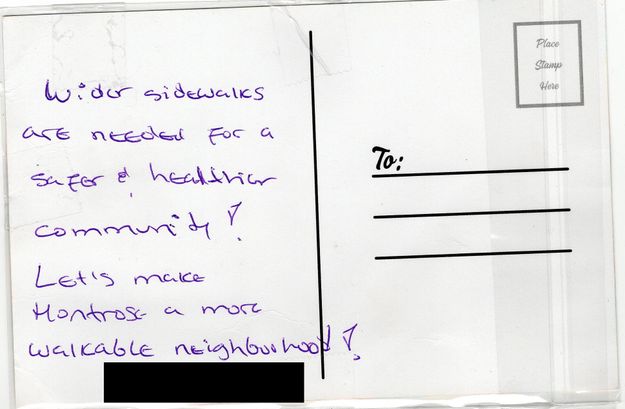 Wider sidewalks
are needed for a
safer & healthier
community!
Let's make
Montrose a more
walkable neighbourhood!
Place
Stamp
Here
To: